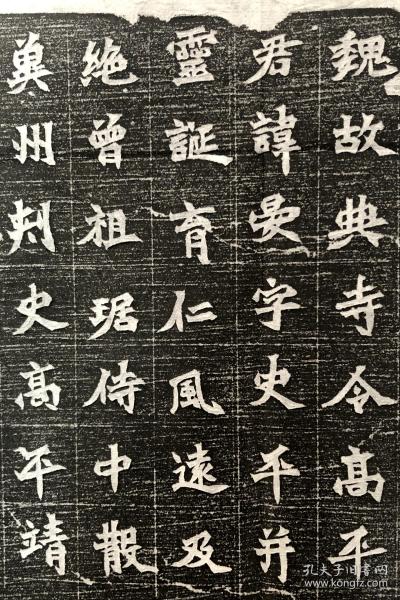 魏故典寺令高平
君諱晏字史平并
靈誕育仁風遠及
絶曾祖琚侍中散
兾州刾史高平靖
孔夫子旧书网
www.kongfz.com